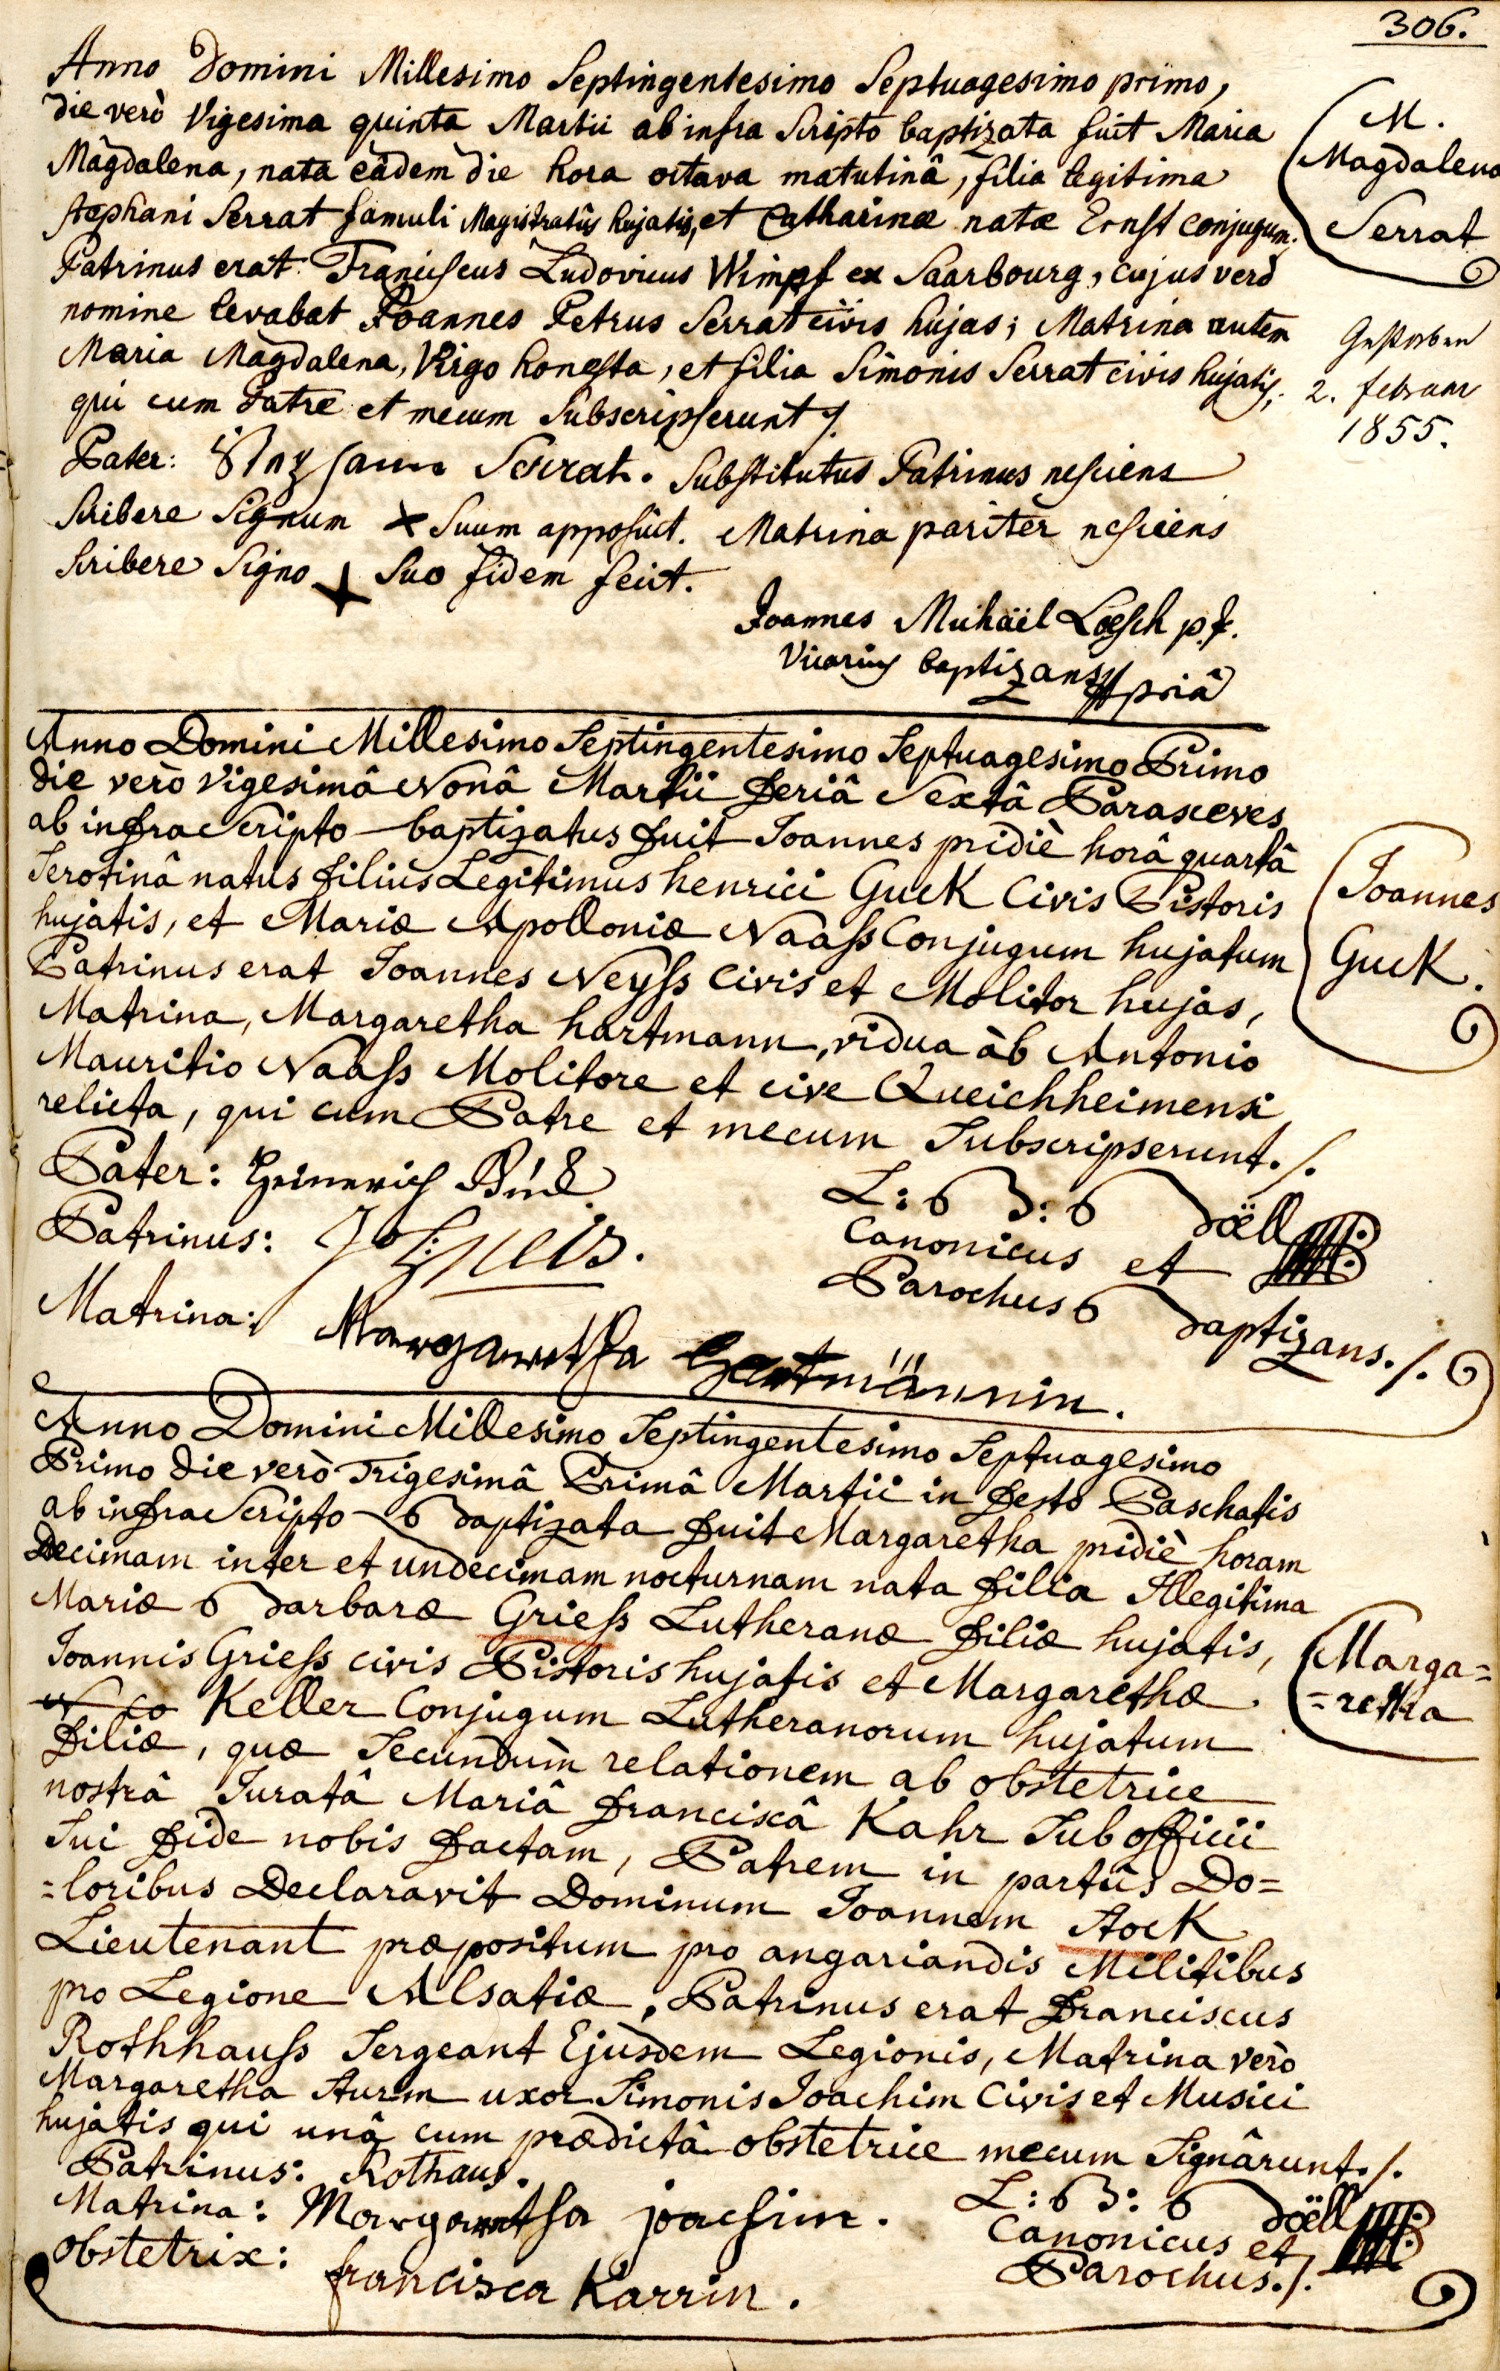 306.
Anno Domini Millesimo Septingentesimo Septuagesimo primo,
die verò Vigesima quinta Martii ab infra scripto baptizata fuit Maria
Magdalena, nata eâdem die hora octava matutinâ, filia legitima
Stephani Serrat famuli Magistratûs hujatis, et Catharinæ natæ Ernst conjugum.
Patrinus erat Franciscus Ludovicus Wimpf ex Saarbourg, cujus verò
nomine levabat Joannes Petrus Serrat civis hujas; Matrina autem
Maria Magdalena, Virgo honesta, et filia Simonis Serrat civis hujatis,
qui cum Patre et mecum Subscripserunt
M.
Magdalena
Serrat
Gestorben
2. februar
1855.
Pater: Serrat. Substitutus Patrinus nesciens
Scribere Signum x Suum apposuit. Matrina pariter nesciens
Scribere Signo + Suo fidem fecit.
Joannes Michaël Loesch p.t.
Vicarius baptizans mpriâ
Anno Domini Millesimo Septingentesimo Septuagesimo Primo
die verò vigesimâ Nonâ Martii feriâ Sextâ Parasceves
ab infra Scripto baptizatus fuit Joannes pridiè horâ quartâ
Serotinâ natus filius Legitimus henrici Guck Civis Pistoris
hujatis, et Mariæ Apolloniæ Naass Conjugum hujatum
Patrinus erat Joannes Neyss Civis et Molitor hujas,
Matrina, Margaretha hartmann, vidua ab Antonio
Mauritio Naass Molitore et cive Queichheimensi
relicta, qui cum Patre et mecum Subscripserunt ./.
Joannes
Guck.
Pater: Heinrich
Patrinus: Joh: neis.
Matrina: Margaretha Hartmännin.
L: B: Böell
Canonicus et
Parochus Baptizans ./.
Anno Domini Millesimo Septingentesimo Septuagesimo
Primo die verò Trigesimâ Primâ Martii in festo Paschatis
ab infra Scripto Baptizata fuit Margaretha pridiè horam
Decimam inter et undecimam nocturnam nata filia Illegitima
Mariæ Barbaræ Griess Lutheranæ filiæ hujatis,
Joannis Griess civis Pistoris hujatis et Margarethæ
Keller Conjugum Lutheranorum hujatum
filiæ, quæ Secundùm relationem ab obstetrice
nostrâ Juratâ Mariâ franciscâ Kahr Sub officii
Sui fide nobis factam, Patrem in partûs Do=
=loribus Declaravit Dominum Joannem Stock
Lieutenant præpositum pro angariandis Militibus
pro Legione Alsatiæ, Patrinus erat franciscus
Rothhauss Sergeant Ejusdem Legionis, Matrina verò
Margaretha Sturm uxor Simonis Joachim Civis et Musici
hujatis qui unâ cum prædictâ obstetrice mecum Signârunt ./.
Marga=
=retha
Patrinus: Rothaus.
Matrina: Margaretha joachim.
obstetrix: francisca Karrin.
L: B: Böell
Canonicus et
Parochus ./.